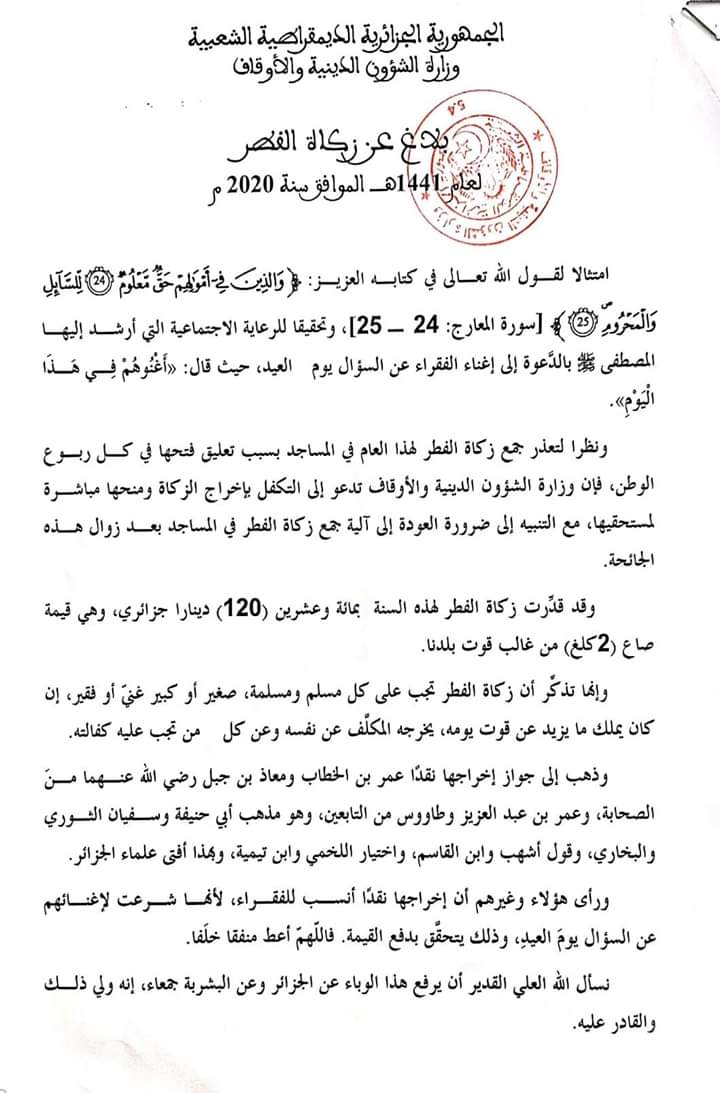 الجمهورية الجزائرية الديمقراطية الشعبية
وزارة الشؤون الدينية والأوقاف
بلاغ عن زكاة الفطر
لعام 1441هـ الموافق سنة 2020 م
امتثالا لقول الله تعالى في كتابه العزيز: ﴿وَالَّذِينَ فِي أَمْوَالِهِمْ حَقٌّ مَّعْلُومٌ (24) لِّلسَّآئِلِ
وَالْمَحْرُومِ (25)﴾ [سورة المعارج: 24 – 25]، وتحقيقا للرعاية الاجتماعية التي أرشد إليها
المصطفى ﷺ بالدَّعوة إلى إغناء الفقراء عن السؤال يوم العيد، حيث قال: «أَغْنُوهُمْ فِي هَذَا
الْيَوْمِ».
ونظرا لتعذر جمع زكاة الفطر لهذا العام في المساجد بسبب تعليق فتحها في كل ربوع
الوطن، فإن وزارة الشؤون الدينية والأوقاف تدعو إلى التكفل بإخراج الزكاة ومنحها مباشرة
لمستحقيها، مع التنبيه إلى ضرورة العودة إلى آلية جمع زكاة الفطر في المساجد بعد زوال هذه
الجائحة.
وقد قدِّرت زكاة الفطر لهذه السنة بمائة وعشرين (120) دينارا جزائري، وهي قيمة
صاع (2كلغ) من غالب قوت بلدنا.
وإنها تذكِّر أن زكاة الفطر تجب على كل مسلم ومسلمة، صغير أو كبير غنيّ أو فقير، إن
كان يملك ما يزيد عن قوت يومه، يخرجه المكلَّف عن نفسه وعن كل من تجب عليه كفالته.
وذهب إلى جواز إخراجها نقدًا عمر بن الخطاب ومعاذ بن جبل رضي الله عنهما منَ
الصحابة، وعمر بن عبد العزيز وطاووس من التابعين، وهو مذهب أبي حنيفة وسفيان الثوري
والبخاري، وقول أشهب وابن القاسم، واختيار اللخمي وابن تيمية، وبهذا أفتى علماء الجزائر.
ورأى هؤلاء وغيرهم أن إخراجها نقدًا أنسب للفقراء، لأنها شرعت لإغنائهم
عن السؤال يومَ العيدِ، وذلك يتحقَّق بدفع القيمة. فاللّهمّ أعط منفقا خلَفا.
نسأل الله العلي القدير أن يرفع هذا الوباء عن الجزائر وعن البشرية جمعاء، إنه ولي ذلك
والقادر عليه.